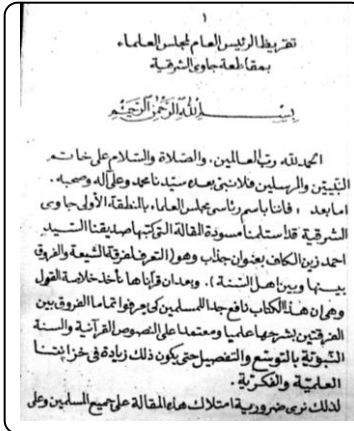 ١
تقريظ الرئيس العام لمجلس العلماء
بمقاطعة جاوى الشرقية
بسم الله الرحمن الرحيم
الحمد لله رب العالمين، والصلاة والسلام على خاتم
النبيين والمرسلين فلا نبي بعده سيدنا محمد وعلى آله وصحبه.
اما بعد: فاننا باسم رئاسة مجلس العلماء بالمنطقة الأولى جاوى
الشرقية قد استلمنا مسودة المقالة التي كتبها صديقنا السيد
احمد زين الكاف بعنوان جذاب وهو (التعرف لفرقة الشيعة والفروق
بينها وبين اهل السنة). وبعد ان قرأناها نأخذ خلاصة القول
وهي ان هذا الكتاب نافع جدا للمسلمين كي يعرفوا تماما الفروق بين
الفرقتين بشرحها علميا ومعتمدا على النصوص القرآنية والسنة
النبوية بالتوسع والتفصيل حتى يكون ذلك زيادة في خزانتنا
العلمية والفكرية.
لذلك نرى ضرورية امتلاك هذه المقالة على جميع المسلمين وعلى